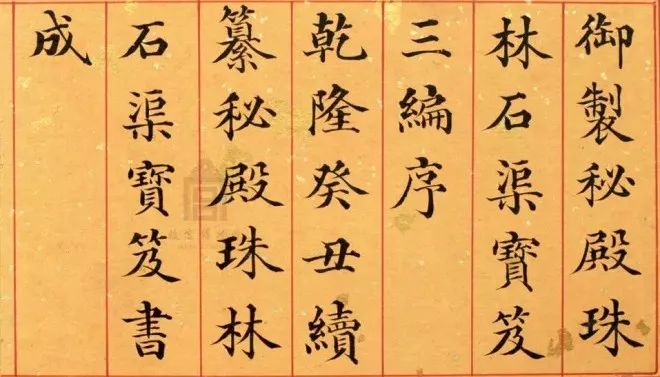 御製秘殿珠
林石渠寳笈
三編序
乾隆癸丑續
纂秘殿珠林
石渠寳笈書
成